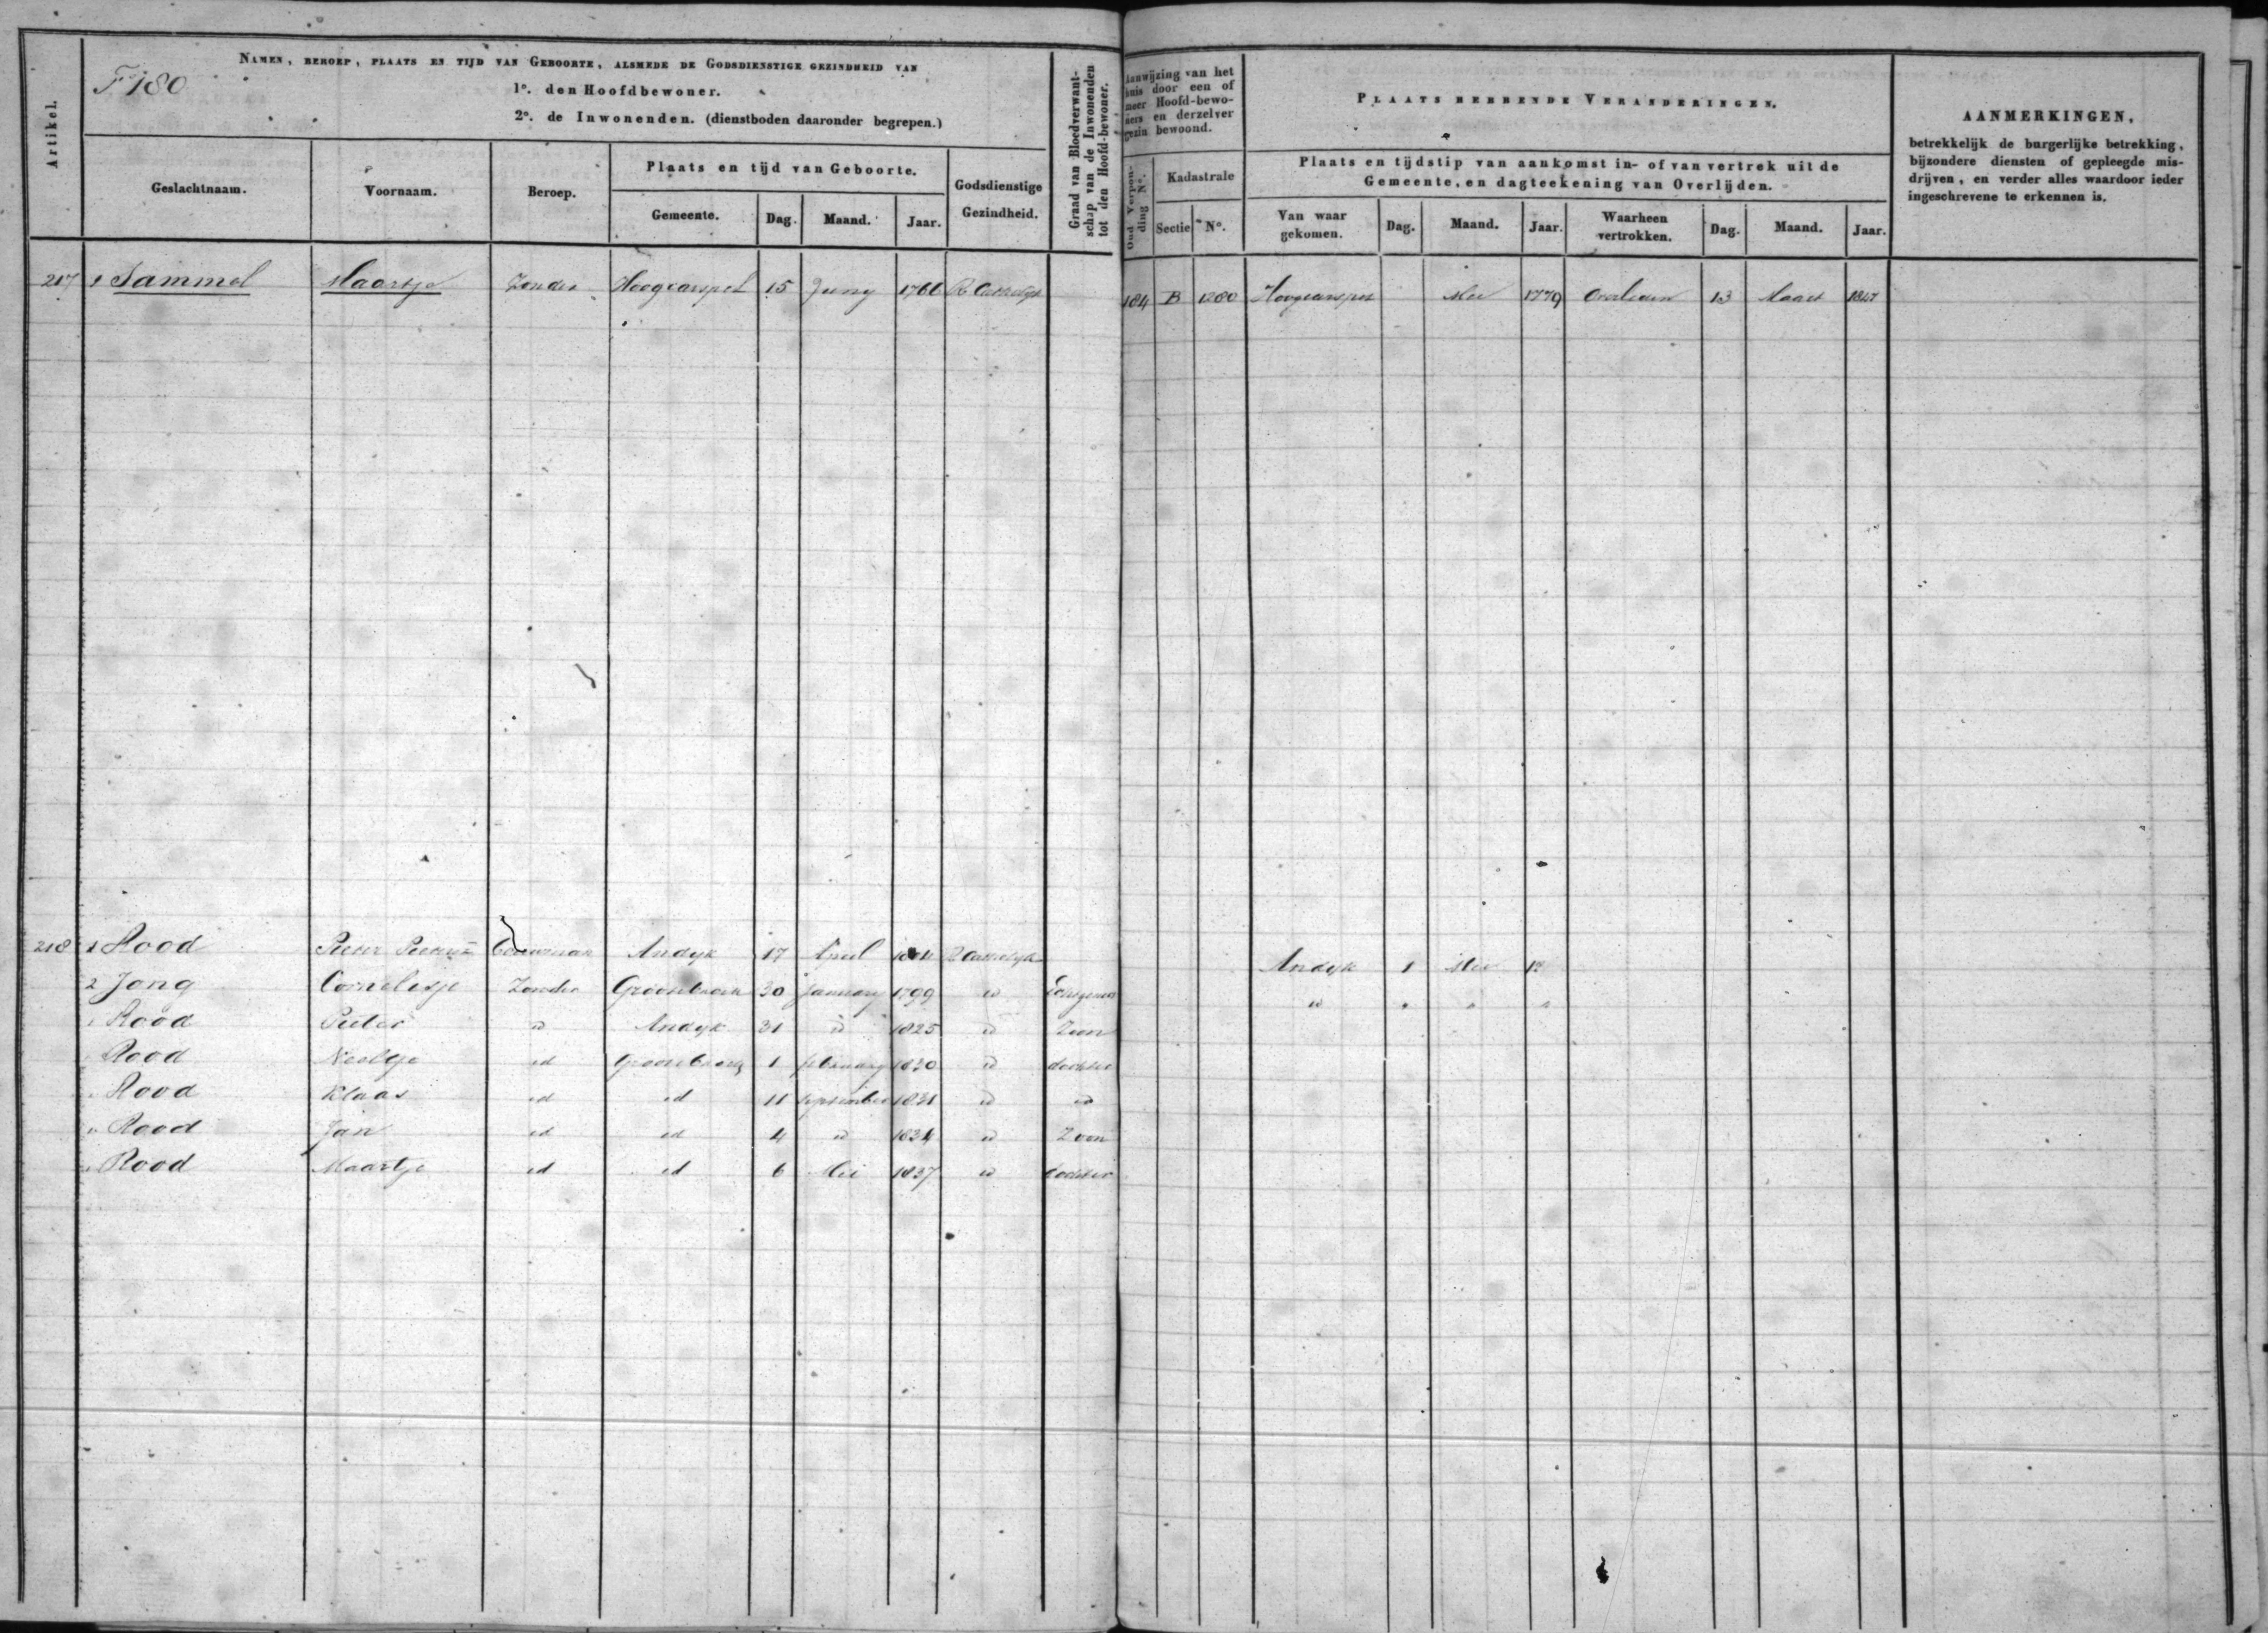 F° 180
NAMEN, BEROEP, PLAATS EN TIJD VAN GEBOORTE, ALSMEDE DE GODSDIENSTIGE GEZINDHEID VAN
1°. den Hoofdbewoner.
2°. de Inwonenden. (dienstboden daaronder begrepen.)
Artikel.
Geslachtnaam.
Voornaam.
Beroep.
Plaats en tijd van Geboorte.
Gemeente.
Dag.
Maand.
Jaar.
Godsdienstige
Gezindheid.
Graad van Bloedverwant-
schap van de Inwonenden
tot den Hoofd-bewoner.
Aanwijzing van het
huis door een of
meer Hoofd-bewo-
ners en derzelver
gezin bewoond.
Oud Verpon-
ding N°.
Kadastrale
Sectie
N°.
PLAATS HEBBENDE VERANDERINGEN.
Plaats en tijdstip van aankomst in- of van vertrek uit de
Gemeente, en dagteekening van Overlijden.
Van waar
gekomen.
Dag.
Maand.
Jaar.
Waarheen
vertrokken.
Dag.
Maand.
Jaar.
AANMERKINGEN,
betrekkelijk de burgerlijke betrekking,
bijzondere diensten of gepleegde mis-
drijven, en verder alles waardoor ieder
ingeschrevene te erkennen is.
217 1 Sammel Maartje Zonder Hoogcarspel 15 Juny 1766 184 B 1280 Hoogcarspel Mei 1779 Overleden 13 Maart 1847
218 1 Rood Pieter Andyk 17 April Andyk 1 Mei
2 Jong Cornelisje Zonder Grootebroek 30 January 1799 id id
Rood Pieter id Andyk 31 id 1825 id Zoon
Rood Neeltje id Grootebroek 1 february 1830 id dochter
Rood Klaas id id 11 September 1831 id id
Rood Jan id id 4 id 1834 id Zoon
Rood Maartje id id 6 Mei 1837 id dochter